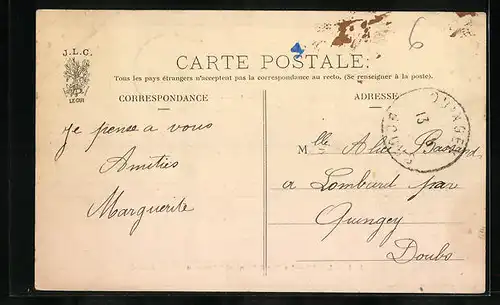 J.L.C.
CARTE POSTALE
6
Tous les pays étrangers n'acceptent pas la correspondance au recto. (Se renseigner à la poste).
CORRESPONDANCE
ADRESSE
QUINGEY
13
6
DOUBS
Je pense a vous
Amitiés
Marguerite
Mlle Alice
a Lombard par
Quingey
Doubs